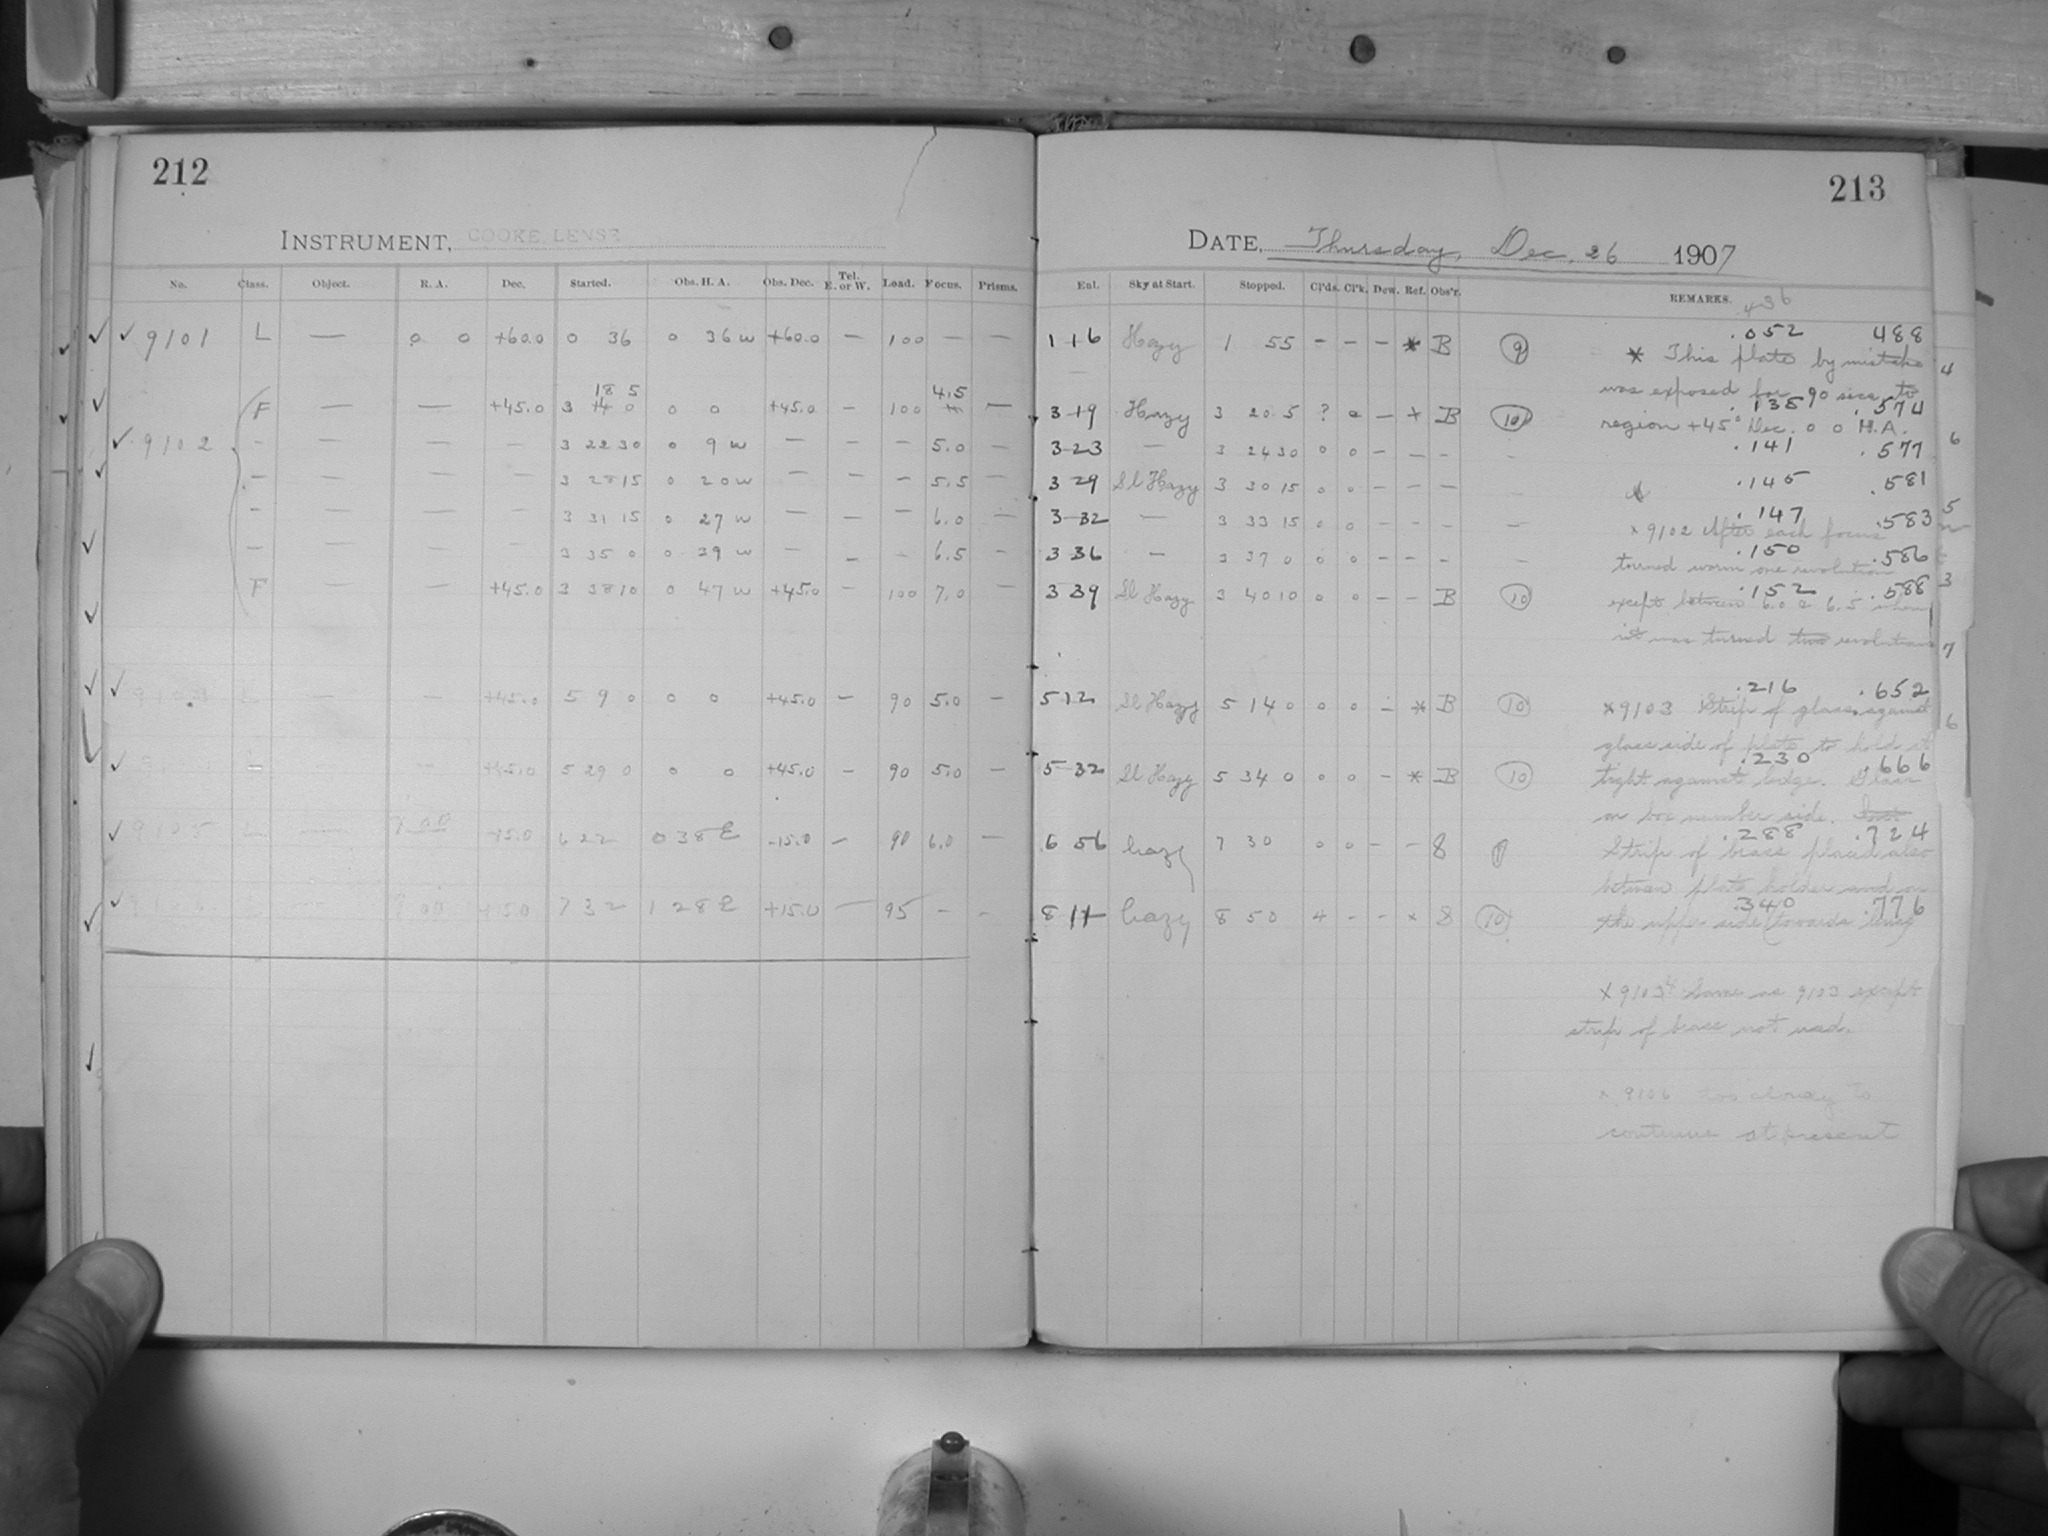 212
INSTRUMENT, COOKE LENSE
No. Class. Object. R. A. Dec. Started. Obs. H. A. Obs. Dec. Tel. E. or W. Load. Focus. Prisms.
✓ 9101 L — 0 0 +60.0 0 36 0 36 W +60.0 — 100 — —
18 5 4.5
F — — +45.0 3 0 0 +45.0 — 100 —
✓ 9102 – – – 3 22 30 0 9 W — — 5.0 —
– – – 3 28 15 0 20 W — — – 5.5 —
– – – 3 31 15 0 27 W — — – 6.0 —
– – – 3 35 0 0 39 W — — – 6.5 –
F — — +45.0 3 38 10 0 47 W +45.0 – 100 7.0 —
✓ — — +45.0 5 9 0 0 0 +45.0 — 90 5.0 –
✓ — — +45.0 5 29 0 0 0 +45.0 — 90 5.0 —
✓ 9105 L — -15.0 6 22 0 38 E -15.0 — 90 6.0 —
✓ 9 00 +15.0 7 32 1 28 E +15.0 — 95 – –
213
DATE, Thursday, Dec. 26 1907
Enl. Sky at Start. Stopped. Cl'ds. Cl'k. Dew. Ref. Obs'r. REMARKS.
436
1 16 Hazy 1 55 – – – * B 9 .052 488
* This plate by mistake
was exposed for 90 secs. to
3 19 Hazy 3 20 5 ? 0 – + B 10 .138 .574
region +45° Dec. 0 0 H.A.
3 23 — 3 24 30 0 0 – – – – .141 .577
3 29 Sl Hazy 3 30 15 0 0 – – – – .145 .581
3 32 — 3 33 15 0 0 – – – – .147 .583
× 9102 After each focus
3 36 – 3 37 0 0 0 – – – – .150 .586
turned worm one revolution
3 39 Sl Hazy 3 40 10 0 0 – – B 10 .152 .588
except between 6.0 & 6.5 when
it was turned two revolutions
5 12 Sl Hazy 5 14 0 0 0 – * B 10 .216 .652
*9103 Strip of glass against
glass side of plate to hold it
5 32 Sl Hazy 5 34 0 0 0 – * B 10 .230 .666
tight against ledge. Glass
on box number side.
6 56 hazy 7 30 0 0 – – 8 .288 .724
Strip of brass placed also
between plate holder and on
8 11 hazy 8 50 + – – × 8 10 .340 .776
the upper side (towards lens)
× 9104 Same as 9103 except
strip of brass not used.
× 9106 too cloudy to
continue at present